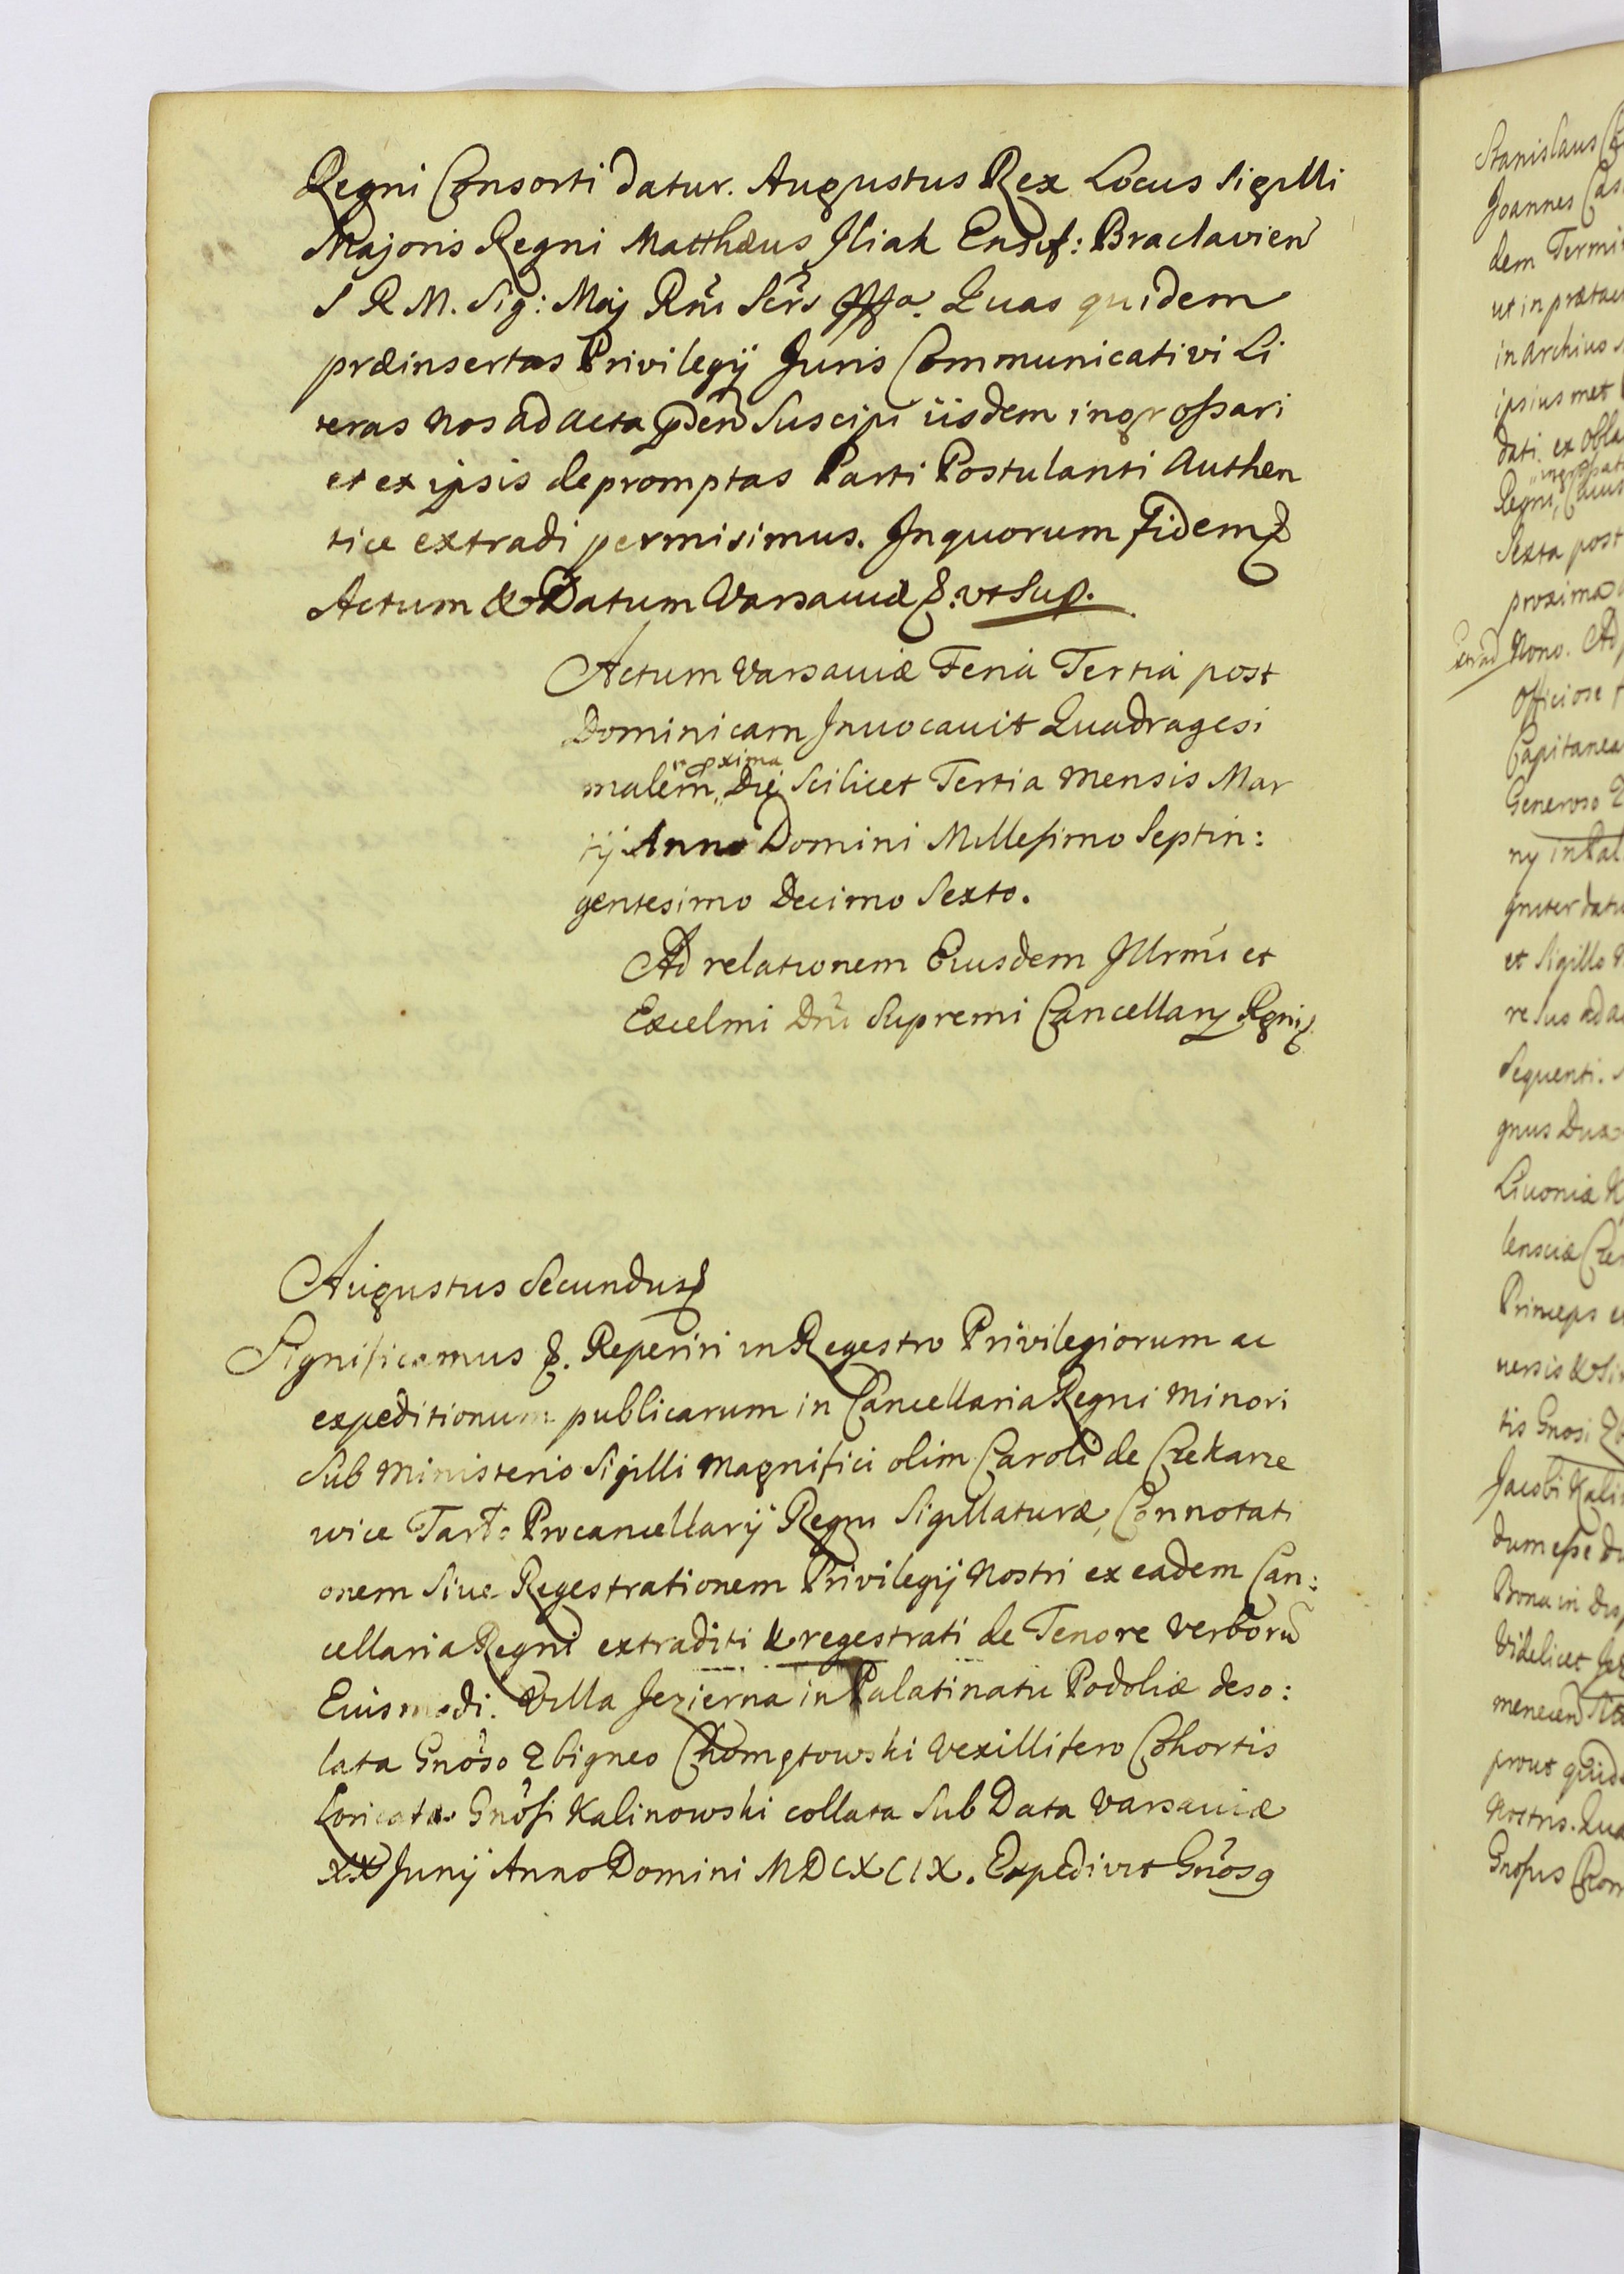 Regni Consorti datur. Augustus Rex Locus Sigilli
Majoris Regni Matthæus Iliak Ensif: Braclavien
S R M. Sig: Maj Rni Scrs Quas quidem
præinsertas Privilegij Juris Communicativi Li
teras nos ad acta pñden suscipi iisdem ingrossari
et ex ipsis depromptas Parti Postulanti Authen
tice extradi permisimus. In quorum fidem &
Actum & Datum Varsauiæ &. vt Sup.
Actum Varsauiæ Feria Tertia post
Dominicam Inuocauit Quadragesi
malem, pxima Die Scilicet Tertia Mensis Mar
tij Anno Domini Millesimo Septin:
gentesimo Decimo Sexto.
Ad relationem Eiusdem Illrmi et
Excelmi Dni Supremi Cancellarij Rgni &
Augustus Secundus &
Significamus &. Reperiri in Regestro Privilegiorum ac
expeditionum publicarum in Cancellaria Regni Minori
Sub Ministerio Sigilli Magnifici olim Caroli de Czekarze
wice Tarło Procancellarij Regni Sigillaturæ, Connotati
onem Siue Regestrationem Privilegij Nostri ex eadem Can:
cellaria Regni extraditi & regestrati de Tenore Verborũ
Eiusmodi. Villa Jezierna in Palatinatu Podoliæ deso:
lata Gnoso Zbigneo Chomętowski Vexillifero Cohortis
Loricatæ Gnosi Kalinowski collata Sub Data Varsauiæ
XX Junij Anno Domini MDCXCIX. Expedivit Gnosq
Stanislaus
Joannes Cas
dem Termi
ut in prætac
in Archivo
ipsiusmet
dati ex obla
ingrossat
Regni, Cuius
Sexta post
proxima
Nono. Ad
Officiose
Capitanea
Generoso Z
ny in Pal
gniter datu
et Sigillo
re Suo ad a
Sequenti.
gnus Dux
Livoniæ K
lensciæ Cze
Princeps e
uersis & si
tis Gnosi Zb
Jacobi Kali
dum esse du
Bona in
Videlicet Jez
menecen
prout quid
Nostris. Qua
Gnosus Chom